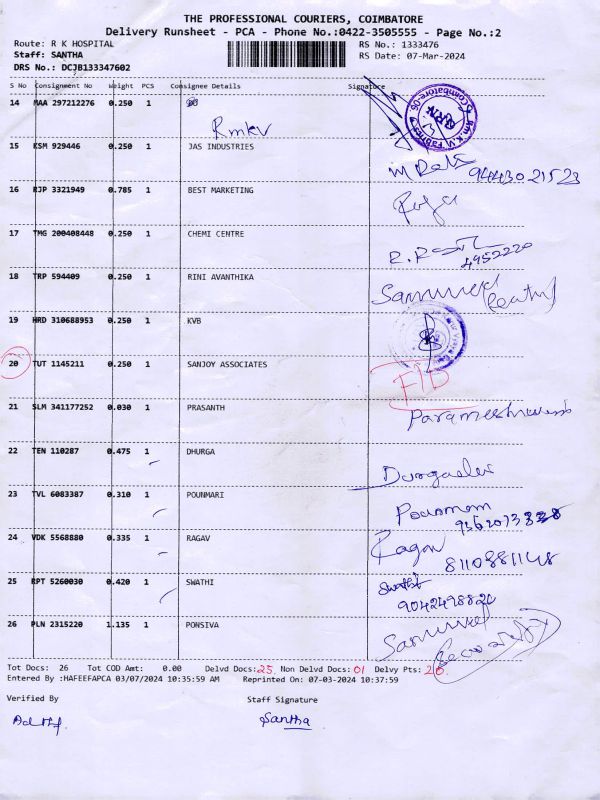 THE PROFESSIONAL COURIERS, COIMBATORE
Delivery Runsheet - PCA - Phone No.:0422-3505555 - Page No.:2
Route: R K HOSPITAL RS No.: 1333476
Staff: SANTHA RS Date: 07-Mar-2024
DRS No.: DCJB133347602
S No Consignment No Weight PCS Consignee Details Signature
14 MAA 297212276 0.250 1
Rmkv
15 KSM 929446 0.250 1 JAS INDUSTRIES
9443021523
16 RJP 3321949 0.785 1 BEST MARKETING
17 TMG 200408448 0.250 1 CHEMI CENTRE
4952220
18 TRP 594409 0.250 1 RINI AVANTHIKA
19 HRD 310688953 0.250 1 KVB
20 TUT 1145211 0.250 1 SANJOY ASSOCIATES
21 SLM 341177252 0.030 1 PRASANTH
22 TEN 110287 0.475 1 DHURGA
23 TVL 6083387 0.310 1 POUNMARI
24 VDK 5568880 0.335 1 RAGAV
8110881148
25 RPT 5260030 0.420 1 SWATHI
Swathi
9042498820
26 PLN 2315220 1.135 1 PONSIVA
Tot Docs: 26 Tot COD Amt: 0.00 Delvd Docs:25 Non Delvd Docs:01 Delvy Pts:26
Entered By :HAFEEFAPCA 03/07/2024 10:35:59 AM Reprinted On: 07-03-2024 10:37:59
Verified By Staff Signature
Santha